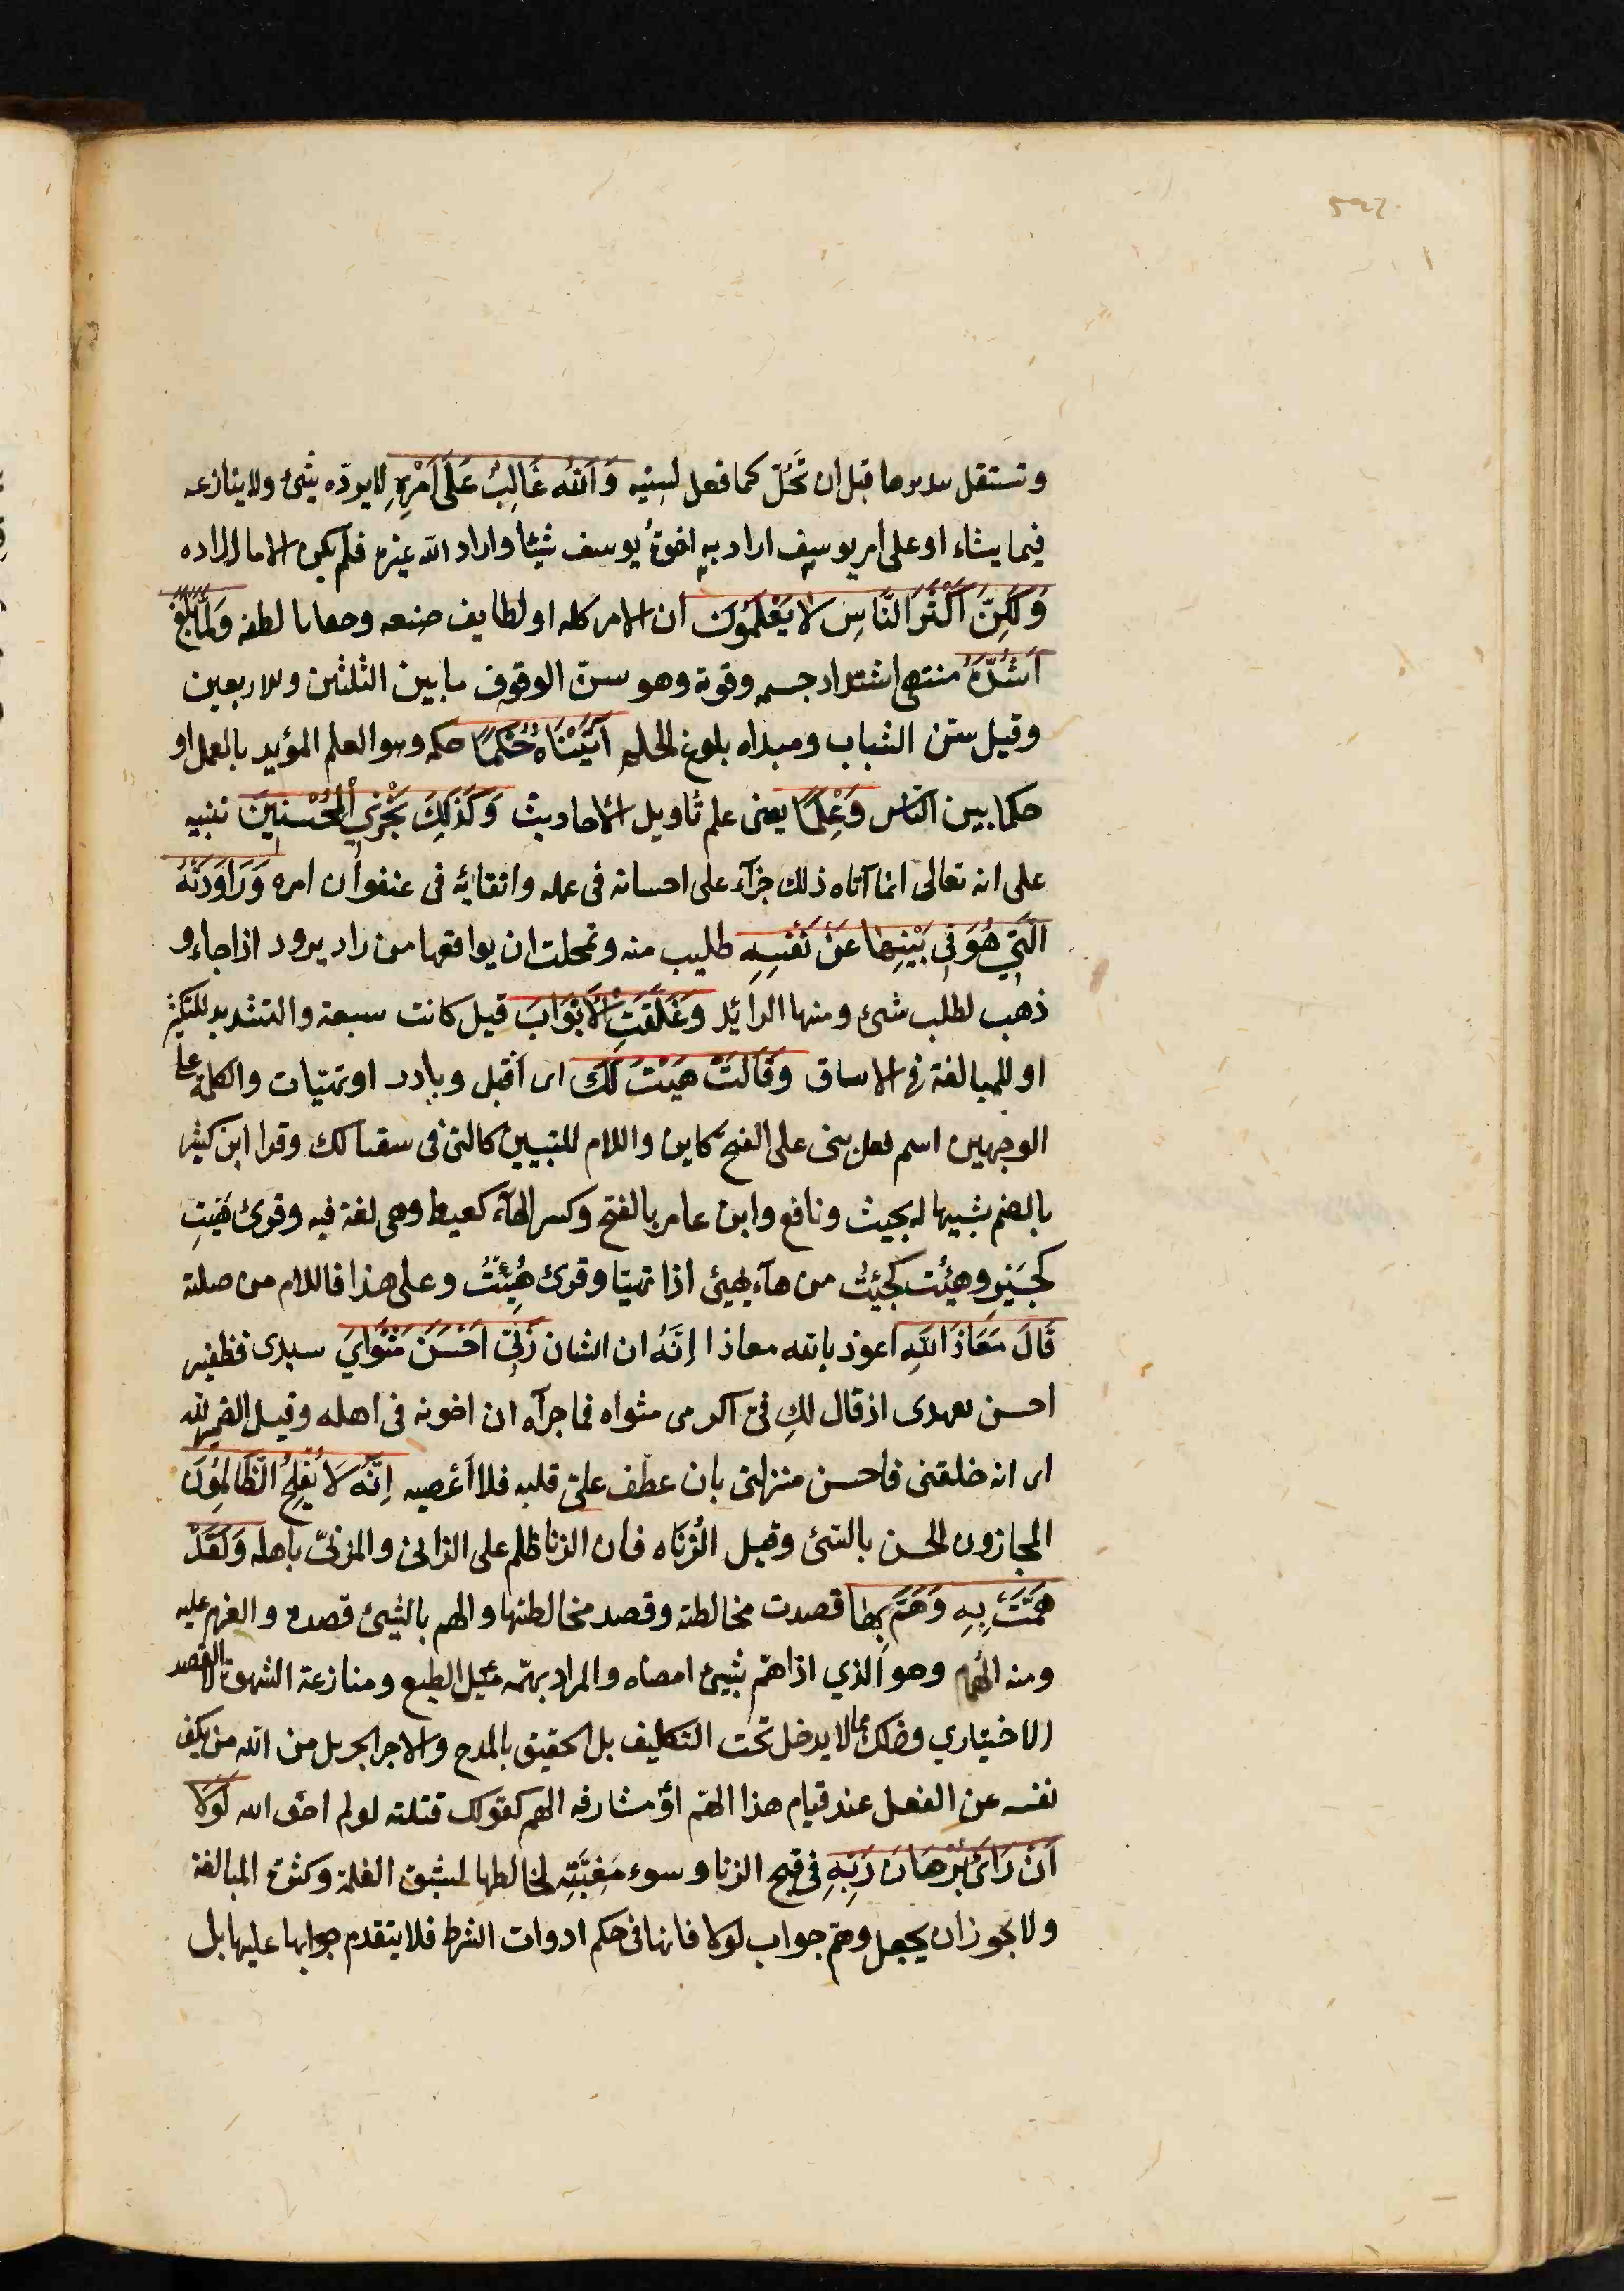 وتستقل بتدبيرها قبل ان تَحُلّ كما فعل لسنيه وَاَللّٰه غَالِبٌ عَلَى اَمْرِهِ لا يردّه شئ ولا ينازعه
فيما يشاء او على امر يوسف اراد به اخوةُ يوسف شيئا واراد الله غيره فلم يكن الا ما اراده
وَلَكِنّ اَكْثَرَ النَّاسِ لَا يَعْلَمُونَ ان الامر كله او لطايف صنعه وخفايا لطفه وَلَمَّا بَلَغَ
اَشُدَّهُ منتهى اشتداد جسمه وقوته وهو سنّ الوقوف ما بين الثلثين والاربعين
وقيل سنّ الشباب ومبداه بلوغ الحلم آتَيْنَاهُ حُكْمًا حكمة وهو العلم المؤيد بالعمل او
حكما بين الناس وَعِلْمًا يعنى علم تأويل الاحاديث وَكَذَلِكَ نَجْزِي الْمُحْسِنِينَ تنبيه
على انه تعالى انما آتاه ذلك جزآء على احسانه فى عمله واتقائه فى عنفوان امره وَرَاوَدَتْهُ
الَّتِي هُوَ فِي بَيْتِهَا عَنْ نَفْسِهِ طلبت منه وتمحلت ان يواقعها من راد يرود اذا جاء و
ذهب لطلب شئ ومنها الرائد وَغَلَّقَتِ الْاَبْوَابَ قيل كانت سبعة والتشديد للتكثير
او للمبالغة فى الايثاق وَقَالَتْ هَيْتَ لَكَ اى اقبل وبادر او تهيّات والكلمة على
الوجهين اسم فعل بنى على الفتح كاين واللام للتبيين كالتى فى سقيا لك وقرا ابن كثير
بالضم تشبيها له بحيث ونافع وابن عامر بالفتح وكسر الهآء كعيط وهى لغة فيه وقرئ هَيْتِ
كجَيْرِ وهِئْت كجِئْتُ من هآء يهيئ اذا تهيّا وقرئ هُيِّئْتُ وعلى هذا فاللام من صلته
قَالَ مَعَاذَ اللّٰهِ اعوذ بالله معاذا اِنَّهُ ان الشان رَبِّى اَحْسَنَ مَثْوَايَ سيدى قطفير
احسن تعهدى اذ قال لكِ فىّ اكرمى مثواه فما جزآه ان اخونه فى اهله وقيل الضمير لله
اى انه خلقنى فاحسن منزلتى بان عطف علىّ قلبه فلا اَعْصيه اِنَّهُ لَا يُفْلِحُ الظَّالِمُونَ
المجازون الحسن بالسئ وقيل الزُناه فان الزنا ظلم على الزانى والمزنىّ باهله وَلَقَدْ
هَمَّتْ بِهِ وَهَمَّ بِهَا قصدت مخالطته وقصد مخالطتها والهم بالشئ قصده والعزم عليه
ومنه الهُمام وهو الذي اذا همّ بشئ امضاه والمراد بهمّه ميل الطبع ومنازعة الشهوة لا القصد
الاختياري وذلك مما لا يدخل تحت التكليف بل الحقيق بالمدح والاجر الجزيل من الله من يكف
نفسه عن الفعل عند قيام هذا الهمّ او مشارفه الهم كقولك قتلته لو لم اخف الله لَوْلَا
اَنْ رَاَى بُرْهَانَ رَبِّهِ فى قبح الزنا وسوء مَغَبَّتِهِ لخالطها لشبق الغلمة وكثرة المبالغة
ولا يجوز ان يجعل وهمّ جواب لولا فانها فى حكم ادوات الشرط فلا يتقدم جوابها عليها بل